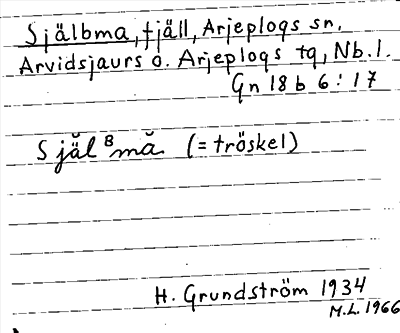 Själbma, fjäll, Arjeplogs sn.
Arvidsjaurs o. Arjeplogs tg, Nb. l.
Gn 18 b 6:17
Sjăl ᴮmă (= tröskel)
H. Grundström 1934
M.L. 1966